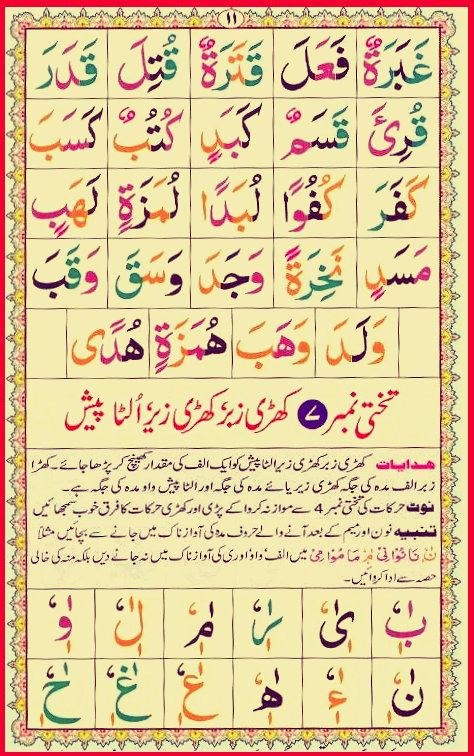 ۱۱
غَبَرَةٌ فَعَلَ قَتَرَةٌ قُتِلَ قَدَرَ
قُرِئَ قَسَمٌ كَبَدٍ كُتُبٌ كَسَبَ
كَفَرَ كُفُوًا لُبَدًا لُمَزَةٍ لَهَبٍ
مَسَدٍ نَخِرَةً وَجَدَ وَسَقَ وَقَبَ
وَلَدَ وَهَبَ هُمَزَةٍ هُدًى
تختی نمبر ۷ کھڑی زبر کھڑی زیر اُلٹا پیش
ھدایات کھڑی زبر کھڑی زیر الٹا پیش کو ایک الف کی مقدار کھینچ کر پڑھا جائے۔ کھڑا
زبر الف مدہ کی جگہ کھڑی زیر یائے مدہ کی جگہ اور الٹا پیش واو مدہ کی جگہ ہے۔
نوٹ حرکات کی تختی نمبر 4 سے موازنہ کروا کے پڑی اور کھڑی حرکات کا فرق خوب سمجھائیں
تنبیہ نون اور میم کے بعد آنے والے حروف مدہ کی آواز ناک میں جانے سے بچائیں مثلاً
نَا نُوْا نِیْ مَا مُوْا مِیْ میں الف واؤ اور ی کی آواز ناک میں نہ جانے دیں بلکہ منہ کی خالی
حصہ سے ادا کروائیں۔